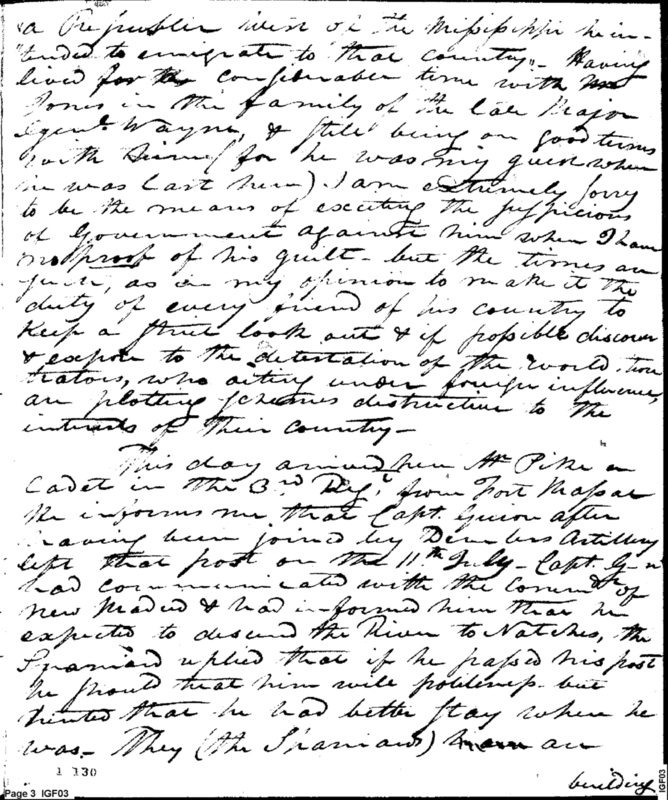 a Republic west of the Missisippi he in-
tended to emigrate to that country. Having
lived for a considerable time with Mr
Jones in the family of the late Major
Genl. Wayne, & still being on good terms
with him (for he was my guest when
he was last here) I am extremely sorry
to be the means of exciting the suspicions
of Government against him when I have
no proof of his guilt - but the times are
such, as in my opinion to make it the
duty of every friend of his country to
keep a strict look out & if possible discover
& expose to the detestation of the world those
traitors, who acting under foreign influence,
are plotting schemes distructive to the
interests of their Country -
This day arrived here Mr. Pike a
Cadet in the 3rd Regt. from Fort Massac
He informs me that Capt. Guion after
having been joined by Demlers Artillery
left that post on the 11th July - Capt. G-n
had communicated with the Commdt. of
New Madrid & had informed him that he
expected to descend the River to Natches, the
Spaniard replied that if he passed his post
he should treat him with politeness - but
hinted that he had better stay where he
was - They (the Spaniards) are
building
1 130
Page 3 IGF03
IGF03